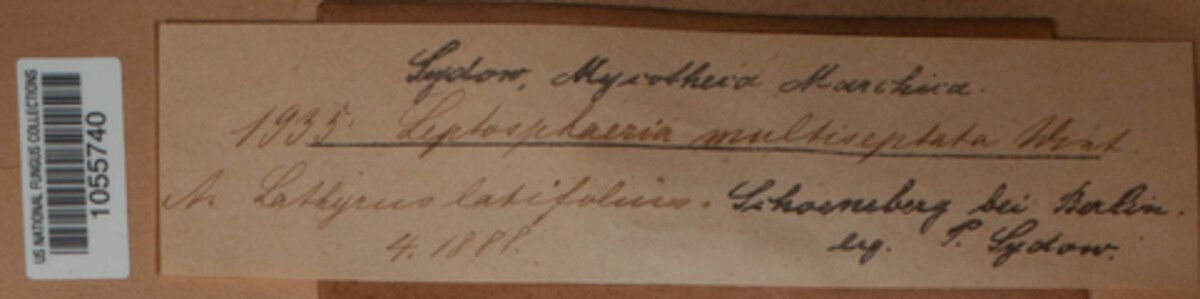 US NATIONAL FUNGUS COLLECTIONS
1055740
Sydow, Mycotheca Marchica.
1935. Leptosphaeria multiseptata Wint.
A. Lathyrus latifolius. Schoeneberg bei Berlin.
4. 1888. leg. P. Sydow.